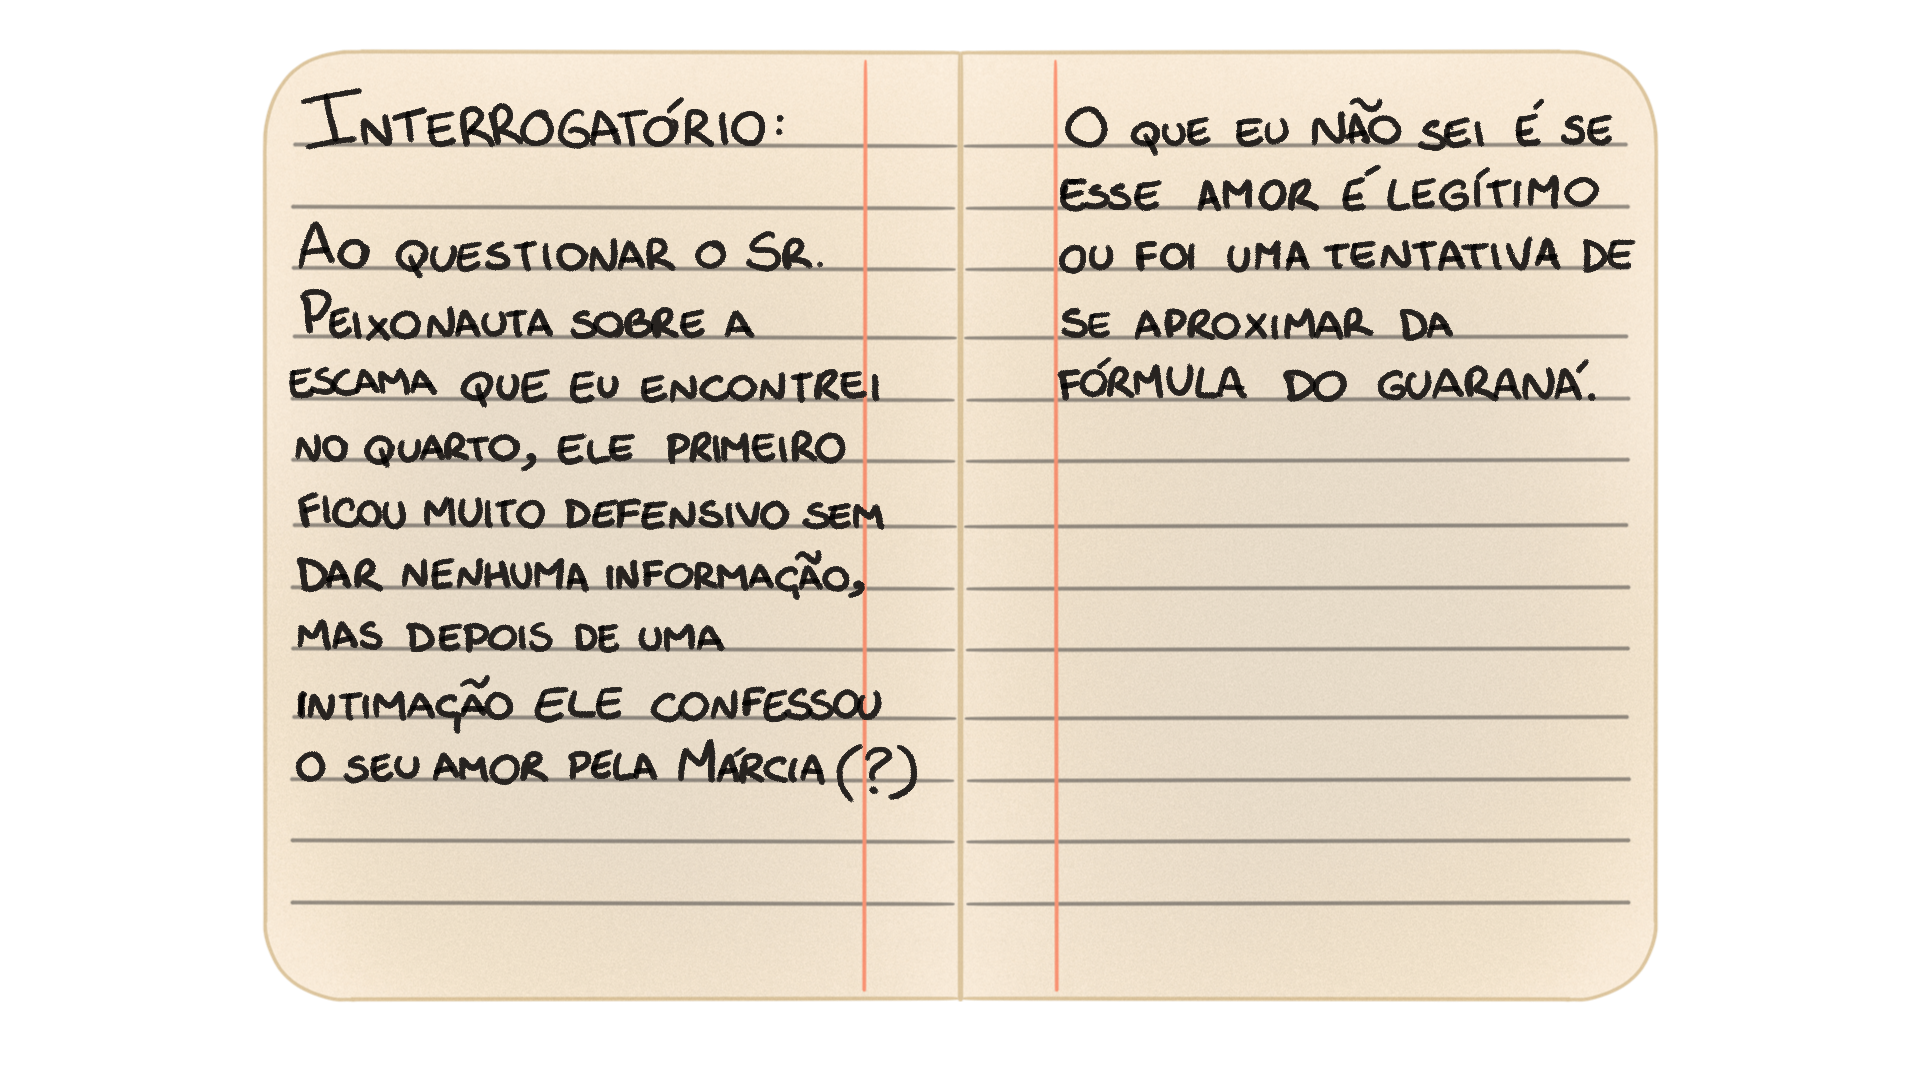 INTERROGATÓRIO:
AO QUESTIONAR O SR.
PEIXONAUTA SOBRE A
ESCAMA QUE EU ENCONTREI
NO QUARTO, ELE PRIMEIRO
FICOU MUITO DEFENSIVO SEM
DAR NENHUMA INFORMAÇÃO,
MAS DEPOIS DE UMA
INTIMAÇÃO ELE CONFESSOU
O SEU AMOR PELA MÁRCIA (?)
O QUE EU NÃO SEI É SE
ESSE AMOR É LEGÍTIMO
OU FOI UMA TENTATIVA DE
SE APROXIMAR DA
FÓRMULA DO GUARANÁ.